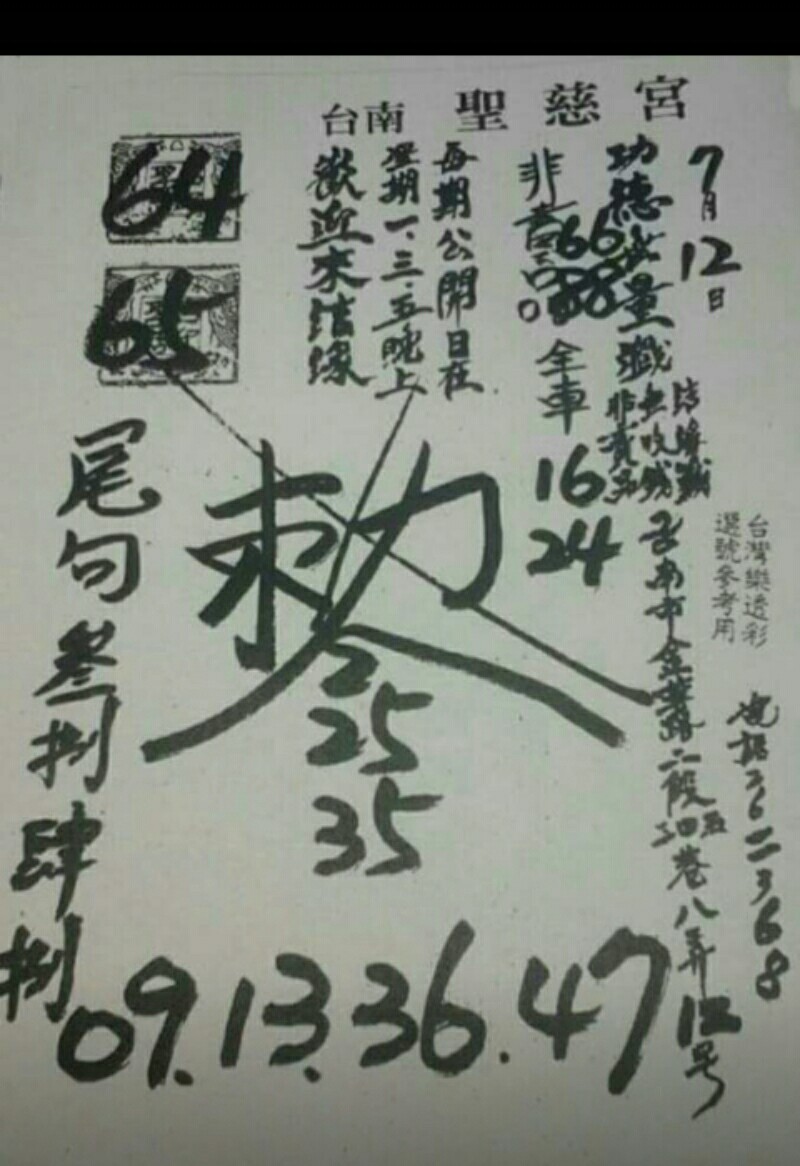 台南 聖慈宮
7月12日
功德無量
結緣
非賣品
66
88
全車
16
24
每期公開日在
星期一、三、五晚上
歡迎來結緣
64
65
台灣樂透彩
選號參考用
台南市金華路二段
巷八弄12号
電話
敕令
25
35
尾句叁捌肆捌
09.13.36.47